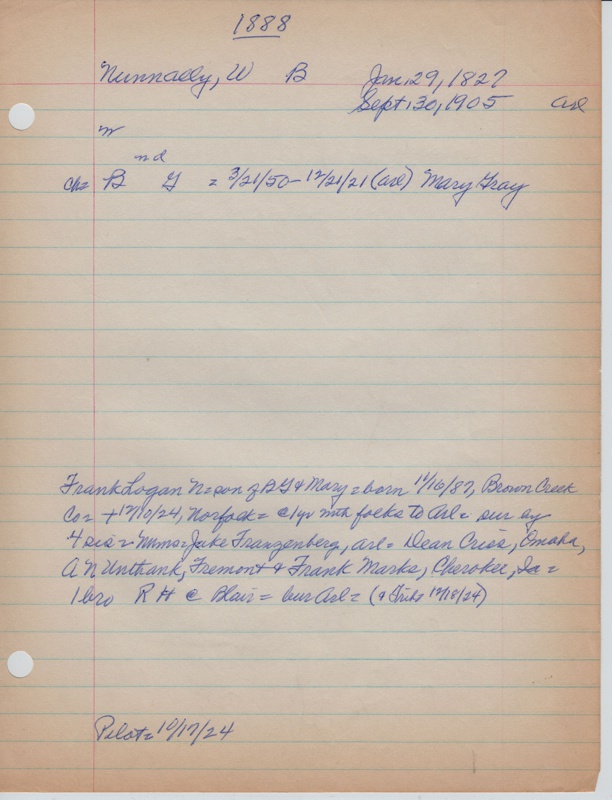 1888
Nunnally, W B Jan. 29, 1827
Sept. 30, 1905 Arl
m
nd
ch= B G = 3/21/50 - 12/21/21 (arl) Mary Gray
Frank Logan N = son of BG & Mary = born 11/16/87, Brown Creek
Co = + 12/10/24, Norfolk = c/yr with folks to Arl = sur by
4 sis = Mmes Jake Franzenberg, Arl = Dean Criss, Omaha,
A N Unthank, Fremont & Frank Marks, Cherokee, Ia =
1 bro R H @ Blair = bur Arl = (a Tribe 12/18/24)
Pilot = 10/17/24